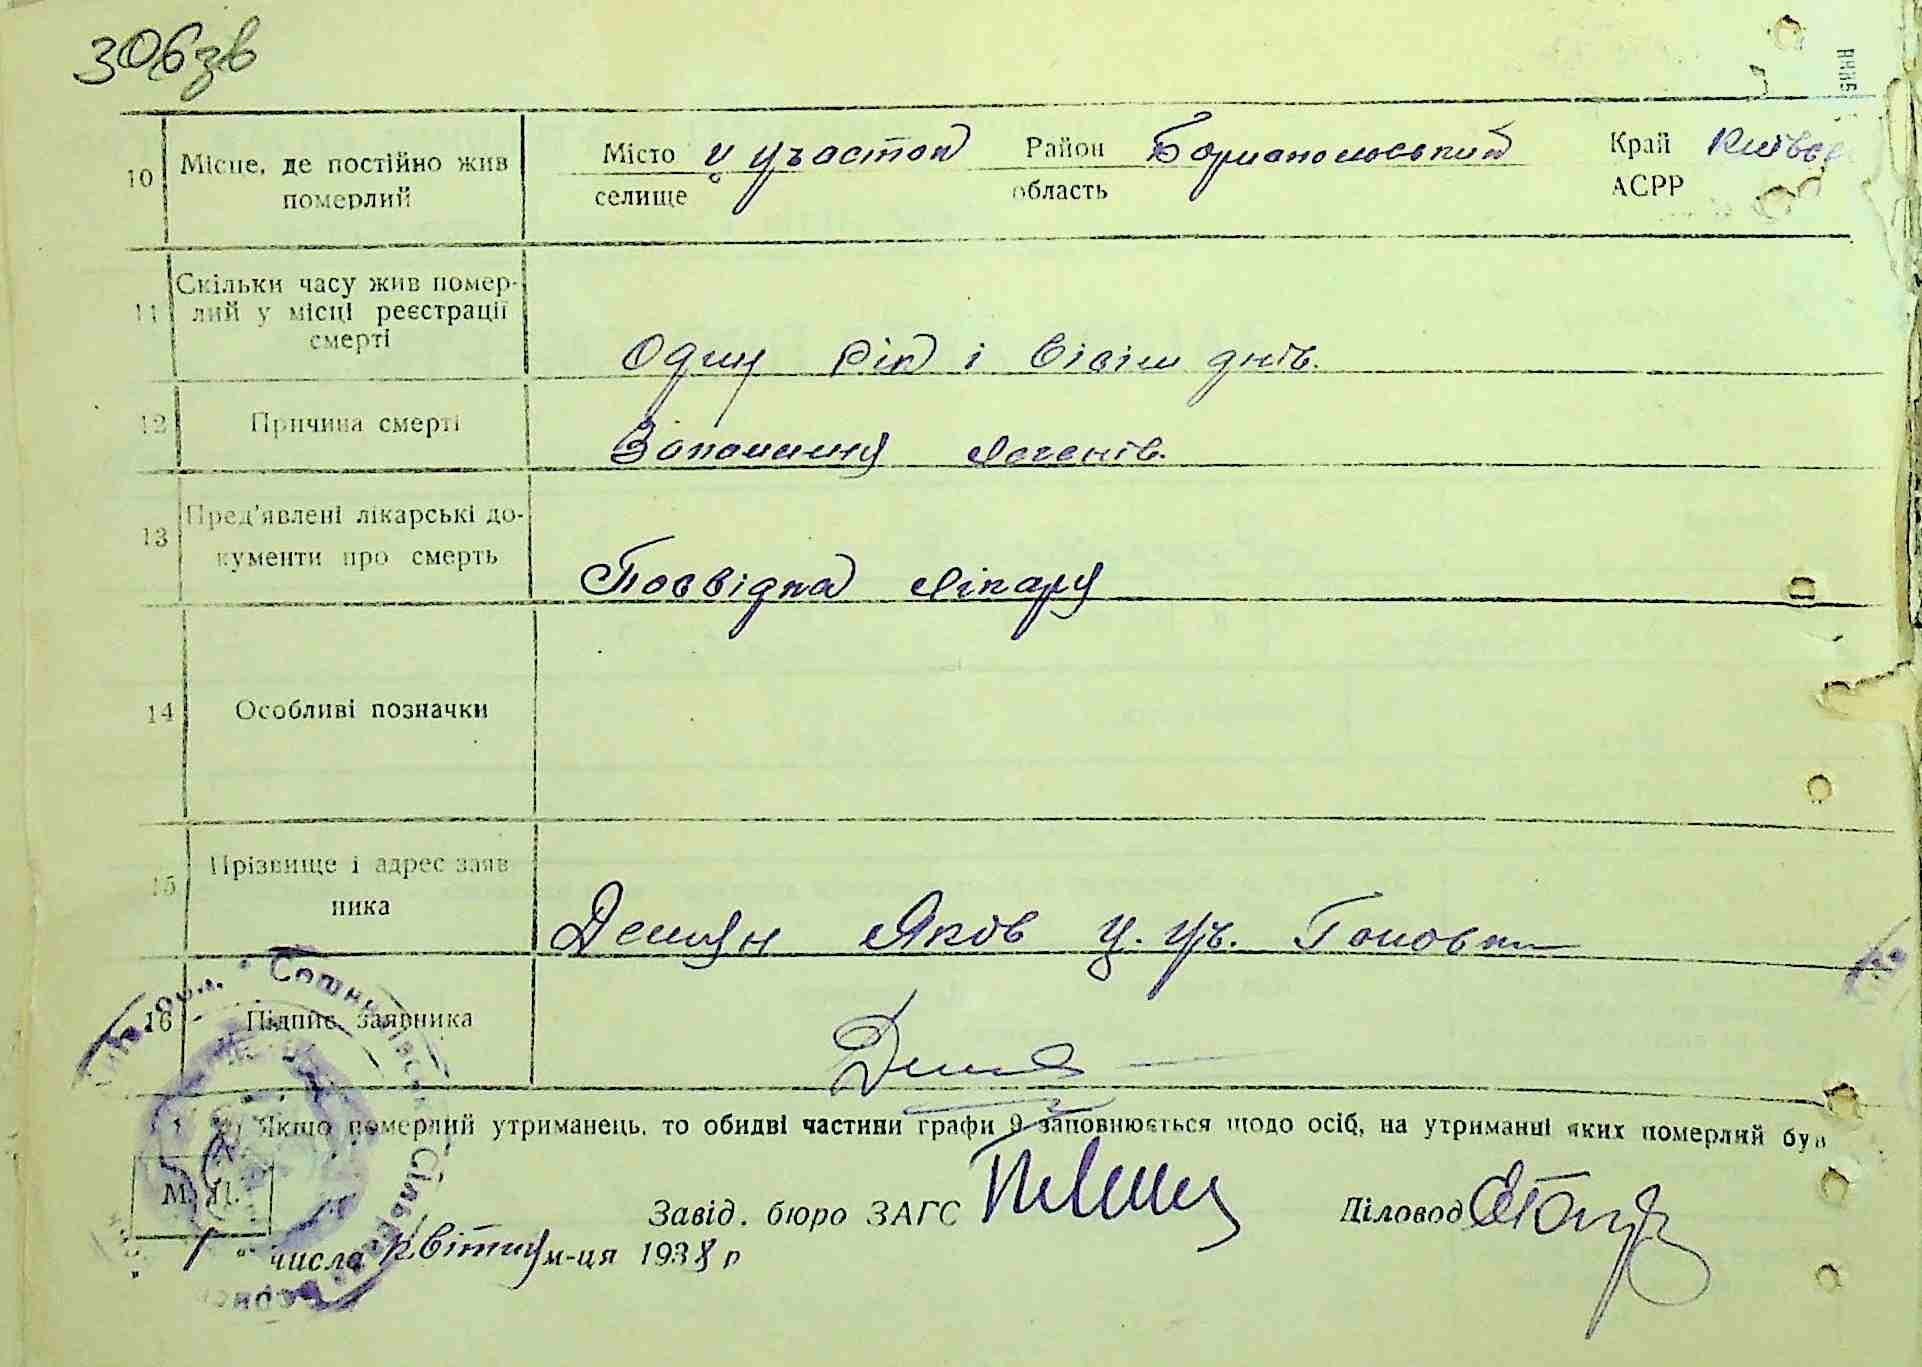 306зв
10 Місце, де постійно жив Місто ц участок Район Бориспольський Край Київсь
померлий селище область АСРР
11 Скільки часу жив помер-
лий у місці реєстрації
смерті
Один Рік і вісім днів.
12 Причина смерті Заполення легенів.
13 Пред'явлені лікарські до-
кументи про смерть
Посвідка лікаря
14 Особливі позначки
15 Прізвище і адрес заяв
ника
Демян Яків ц. уч.
16 Підпис заявника
*) Якщо померлий утриманець, то обидві частини графи 9 заповнюється щодо осіб, на утриманні яких померлий був
М. П.
Завід. бюро ЗАГС Діловод
„ 1 " числа квітня м-ця 1938 р